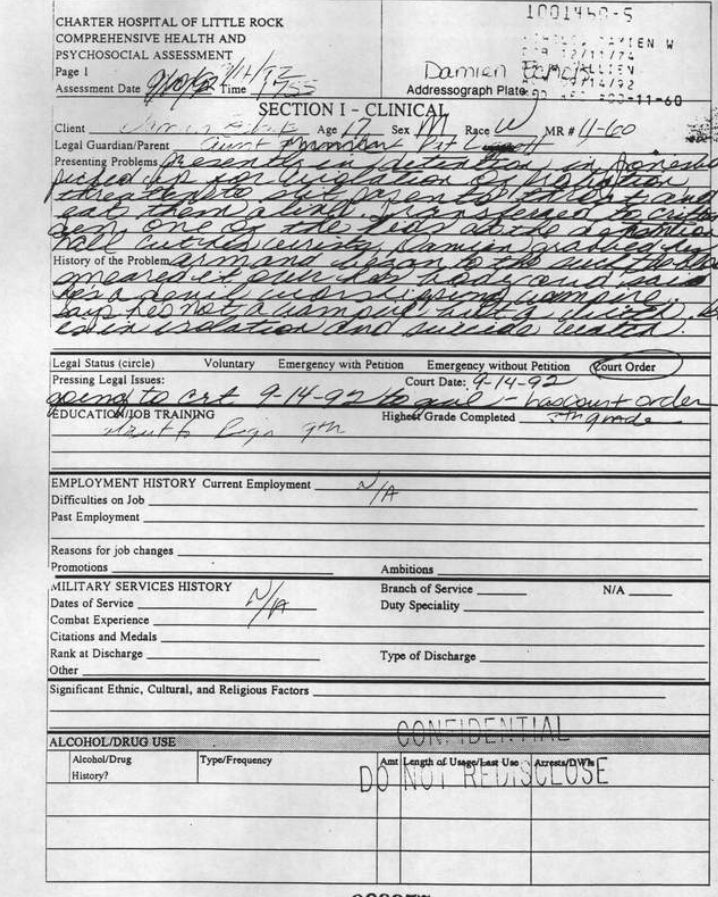 1001460-5
CHARTER HOSPITAL OF LITTLE ROCK
COMPREHENSIVE HEALTH AND
PSYCHOSOCIAL ASSESSMENT
Page 1
Damien
Assessment Date Time 1755
Addressograph Plate 11-60
SECTION I - CLINICAL
Client Age 17 Sex M Race W MR # 11-60
Legal Guardian/Parent Aunt
Presenting Problems Presents in detention in
picked up for violation of probation
threatened to slit parents throat and
eat them alive. Transferred to
one of the kids at the detention
hall cut his wrists, Damien grabbed his
History of the Problem arm and began to suck the
smeared it over his body and said
he's a devil worshipping vampire.
says he's not a vampire but a
is in isolation and suicide watch.
Legal Status (circle) Voluntary Emergency with Petition Emergency without Petition Court Order
Pressing Legal Issues: Court Date: 9-14-92
going to crt 9-14-92 to - has court order
EDUCATION/JOB TRAINING Highest Grade Completed grade
9th
EMPLOYMENT HISTORY Current Employment N/A
Difficulties on Job
Past Employment
Reasons for job changes
Promotions Ambitions
MILITARY SERVICES HISTORY N/A Branch of Service N/A
Dates of Service Duty Speciality
Combat Experience
Citations and Medals
Rank at Discharge Type of Discharge
Other
Significant Ethnic, Cultural, and Religious Factors
CONFIDENTIAL
ALCOHOL/DRUG USE
Alcohol/Drug Type/Frequency Amt Length of Usage/Last Use Arrests/DWIs
History?
DO NOT REDISCLOSE